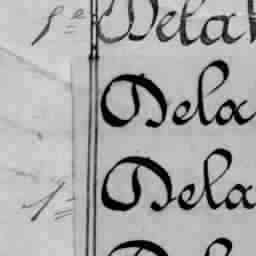 1ª Dela
Dela
1ª Dela